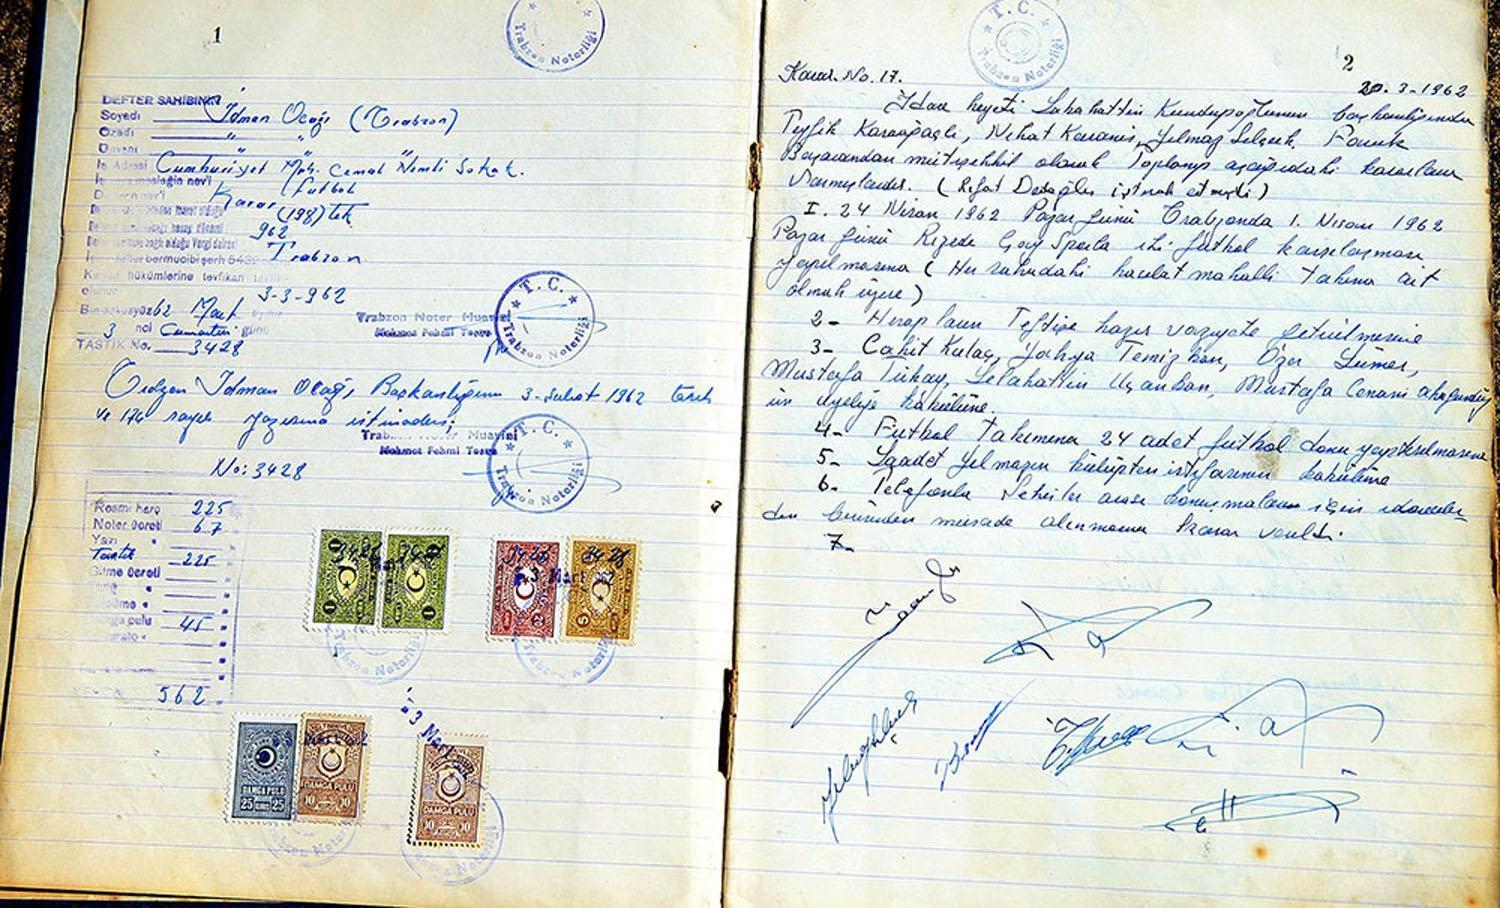 1
T. C.
Trabzon Noterliği
DEFTER SAHİBİNİN
Soyadı İdman Ocağı (Trabzon)
Özadı " "
Ünvanı " "
İş Adresi Cumhuriyet Mah. Cemal Nemli Sokak.
futbol
Karar (198) tek
962
Trabzon
hükümlerine tevfikan
3-3-962
62 Mart
3 ncü Cumartesi günü
TASTİK No. 3428
Trabzon Noter Muavini
Mehmet Fehmi
T. C.
Trabzon Noterliği
Trabzon İdman Ocağı Başkanlığının 3-Şubat 1962 tarih
ve 174 sayılı yazısına istinaden.
Trabzon Noter Muavini
Mehmet Fehmi
No: 3428
T. C.
Trabzon Noterliği
Resmi harç 225
Noter ücreti 67
Yazı "
Tastik 225
Gitme ücreti
pulu 45
562
3428
1 1
3428
2
3428
5
3 Mart
Trabzon Noterliği
DAMGA PULU
25 KURUŞ 25
DAMGA PULU
10 10
3 Mart
DAMGA PULU
10 10
2
T. C.
Trabzon Noterliği
Karar. No. 17.
20.3-1962
İdare heyeti Sabahattin Kundupoğlunun başkanlığında
Tevfik Karaağaçlı, Nihat Yılmaz Selçuk. Faruk
müteşekkil olarak Toplanıp aşağıdaki kararları
Vermişlerdir. (Rıfat Dedeoğlu iştirak etmedi)
I. 24 Nisan 1962 Pazar günü Trabzonda 1. Nisan 1962
Pazar günü Rizede Çay Sporla iki futbol karşılaşması
yapılmasına (Her sahadaki hasılat mahalli takıma ait
olmak üzere)
2- Hesapların Teftişe hazır vaziyete getirilmesine
3- Cahit Kulaç, Yahya Temizkan, Özer Sümer,
Mustafa Tükay, Selahattin Uçankan, Mustafa Cenani
ün üyeliğe kabulüne.
4- Futbol takımına 24 adet futbol donu yaptırılmasına
5- Saadet Yılmazın kulüpten istifasının kabulüne
6- Telefonla Şehirler arası konuşmaları için idareciler-
den birinden müsade alınmasına karar verildi.
7-